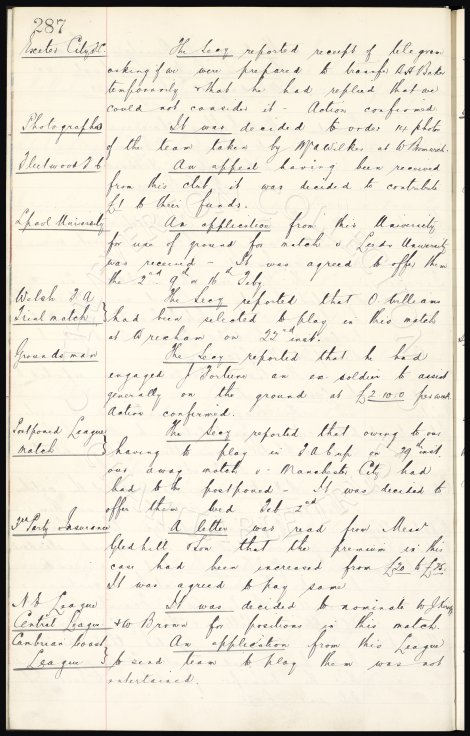 287
Exeter City F.C. The Secy reported receipt of telegram
asking if we were prepared to transfer A H Baker
temporarily & that he had replied that we
could not consider it - Action confirmed
Photographs It was decided to order photo
of the team taken by Mr A Wilkes at W Bromwich.
Fleetwood F C An appeal having been received
from this club it was decided to contribute
£1 to their funds.
Lpool University An application from this University
for use of ground for match v Leeds University
was received - It was agreed to offer them
the 2nd 9th or 16th Feby
Welsh F A The Secy reported that O Williams
Trial match had been selected to play in this match
at Wrexham on 22nd inst.
Groundsman The Secy reported that he had
engaged J Fortune an ex-soldier to assist
generally on the ground at £2.10.0 per week
Action confirmed.
Postponed League The Secy reported that owing to our
match having to play in F A Cup on 29th inst.
our away match v Manchester City had
had to be postponed - It was decided to
offer them Wed Feb 2nd
3rd Party Insurance A letter was read from Messrs
Gledhill & Son that the premium in this
case had been increased from £20 to £25.
It was agreed to pay same
League It was decided to nominate W J
Central League & W Brown for positions in this match.
Cambrian Coast An application from this League
League to send team to play them was not
entertained.